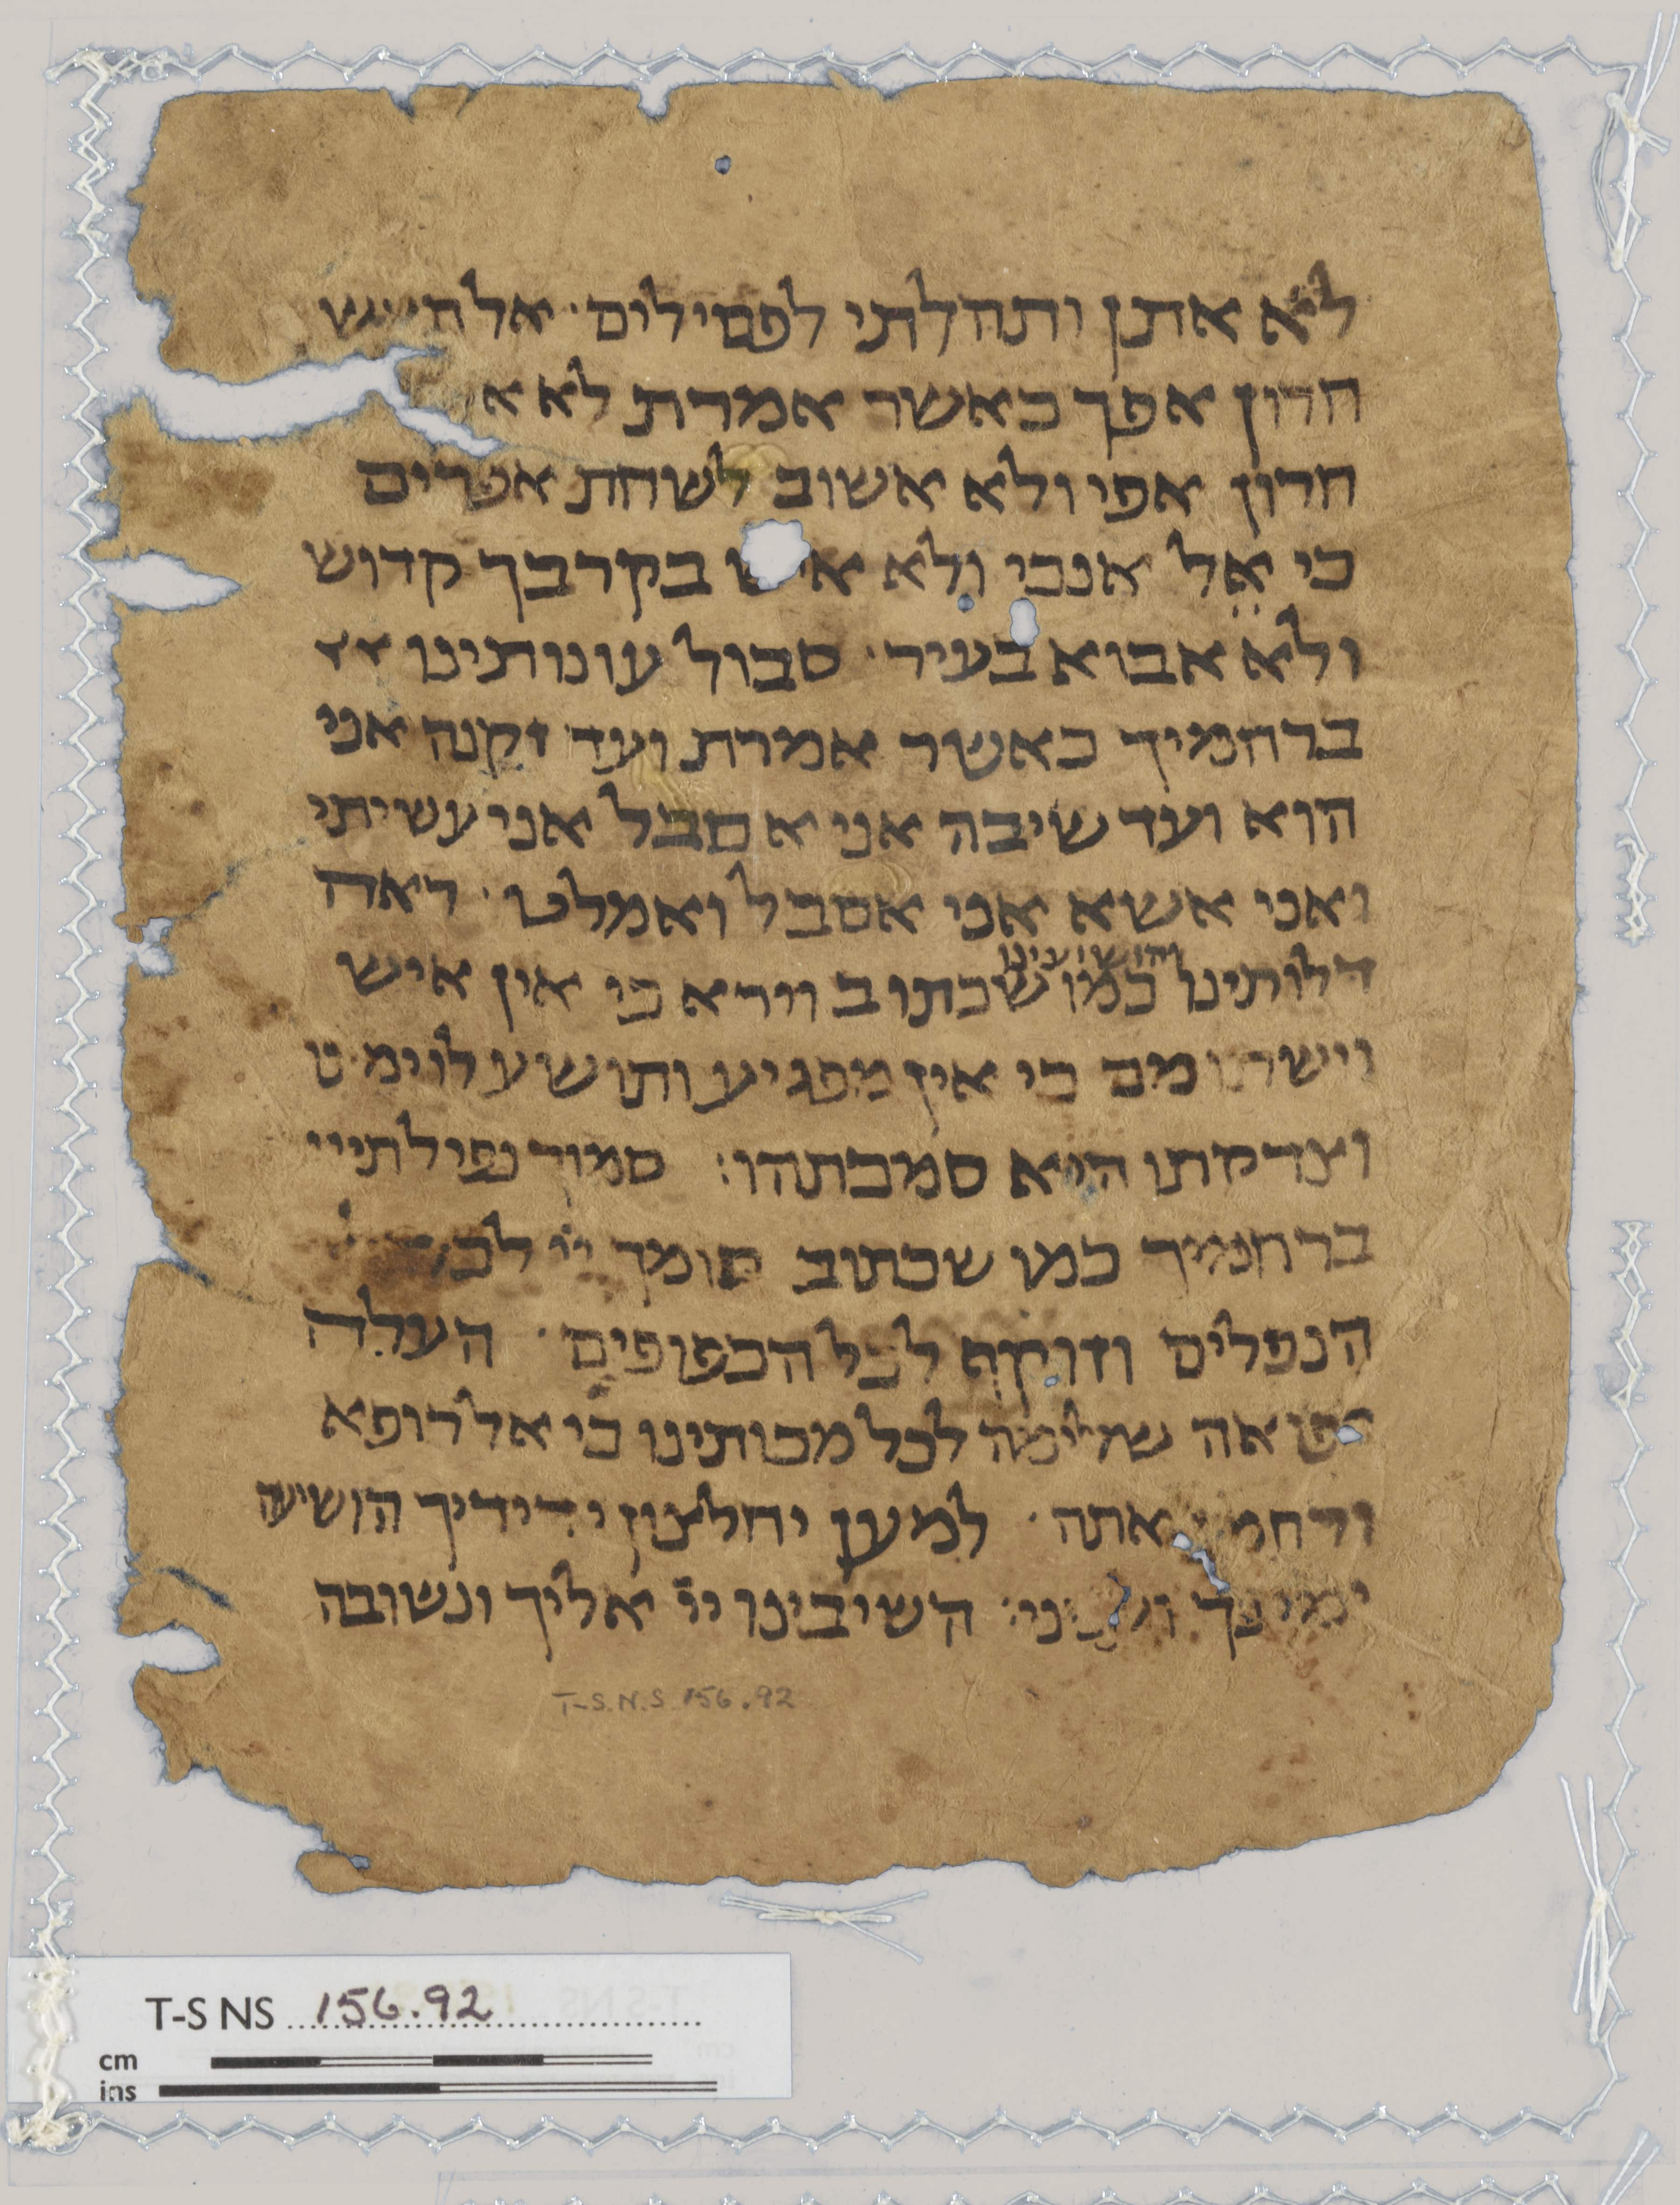 לא אתן ותהלתי לפסילים · אל תעש
חרון אפך כאשר אמרת לא א
חרון אפי ולא אשוב לשחת אפרים
כי אל אנכי ולא איש בקרבך קדוש
ולא אבוא בעיר · סבול עונותינו
ברחמיך כאשר אמרת ועד זקנה אני
הוא ועד שיבה אני אסבל אני עשיתי
ואני אשא אני אסבל ואמלט · ראה
והושיעינו
דלותינו כמו שכתוב וירא כי אין איש
וישתומם כי אין מפגיע ותושע לו ימ
וצדקתו היא סמכתהו : סמוך נפילתיי
ברחמיך כמו שכתוב סומך ייי לכל
הנפלים וזוקף לכל הכפופים · העלה
שלימה לכל מכותינו כי אל רופא
ורחמן אתה · למען יחלצון ידידיך הושיעה
ימינך וענני : השיבינו ייי אליך ונשובה
T-S.N.S 156.92
T-S NS 156.92
cm
ins